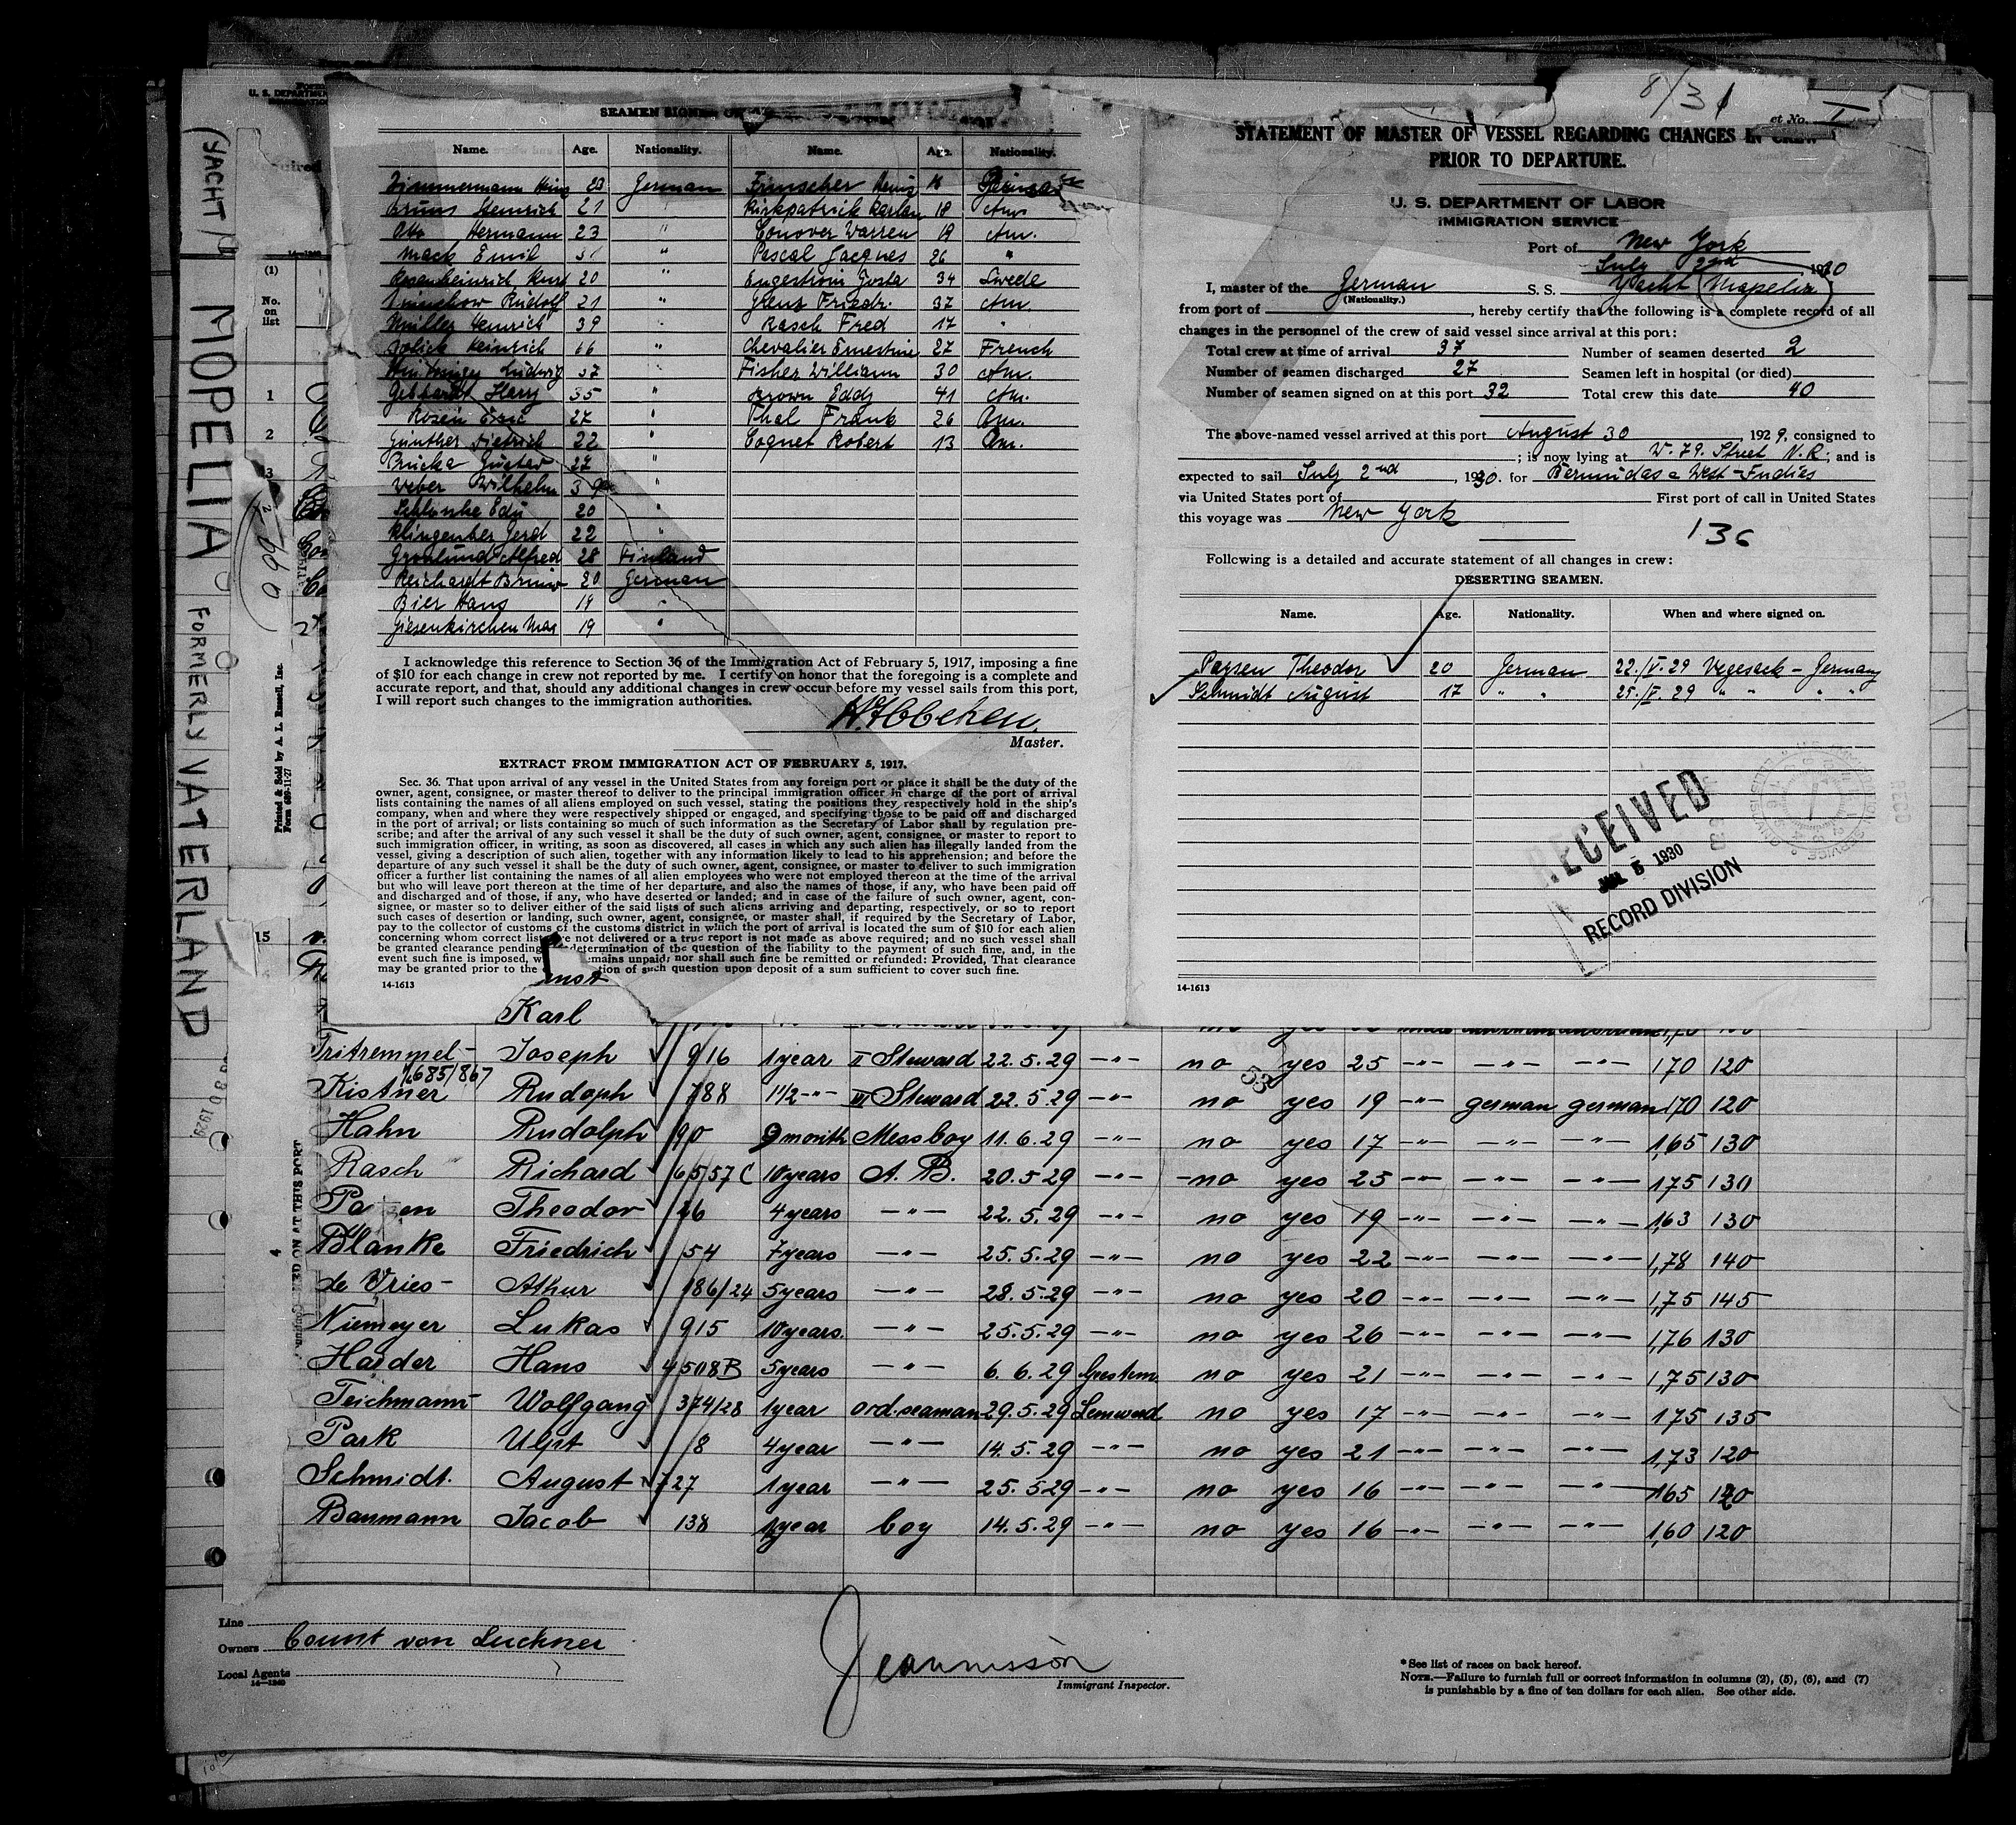 8/31
(YACHT)
MOPELIA
FORMERLY VATERLAND
U. S. DEPARTMENT
(1)
No. on list
1
2
3
15
Printed & Sold by A. L. Russell, Inc.
Form 689-11-27
SEAMEN SIGNED ON AT THIS PORT
SEAMEN SIGNED
Name. Age. Nationality. Name. Age. Nationality.
Zimmermann 23 German Firmscher
Bruns Heinrich 21 " Kirkpatrik Harlan 18 Am.
Otto Hermann 23 " Conover Warren 19 Am.
Mack Emil 31 " Pascal Jacques 26 "
Rosenheinrich Kurt 20 " Engestrom Gosta 34 Swede
Rudolf 21 " Friedr. 37 Am.
Müller Heinrich 39 " Rasch Fred 17 "
Heinrich 66 " Chevalier Ernestine 27 French
Ludwig 37 " Fisher William 30 Am.
Gebhardt Harry 35 " Brown Eddy 41 Am.
Rosen 27 " Thal Frank 26 Am.
Günther Dietrich 22 " Coquet Robert 13 Am.
Brucka Gustav 27 "
Weber Wilhelm 39 "
Edu 20 "
Klingenber Gerd 22 "
Gronlund Alfred 28 Finland
Reichardt Bruno 20 German
Bier Hans 19 "
Giesenkirchen Max 19 "
I acknowledge this reference to Section 36 of the Immigration Act of February 5, 1917, imposing a fine
of $10 for each change in crew not reported by me. I certify on honor that the foregoing is a complete and
accurate report, and that, should any additional changes in crew occur before my vessel sails from this port,
I will report such changes to the immigration authorities.
Master.
EXTRACT FROM IMMIGRATION ACT OF FEBRUARY 5, 1917.
Sec. 36. That upon arrival of any vessel in the United States from any foreign port or place it shall be the duty of the
owner, agent, consignee, or master thereof to deliver to the principal immigration officer in charge of the port of arrival
lists containing the names of all aliens employed on such vessel, stating the positions they respectively hold in the ship's
company, when and where they were respectively shipped or engaged, and specifying those to be paid off and discharged
in the port of arrival; or lists containing so much of such information as the Secretary of Labor shall by regulation pre-
scribe; and after the arrival of any such vessel it shall be the duty of such owner, agent, consignee, or master to report to
such immigration officer, in writing, as soon as discovered, all cases in which any such alien has illegally landed from the
vessel, giving a description of such alien, together with any information likely to lead to his apprehension; and before the
departure of any such vessel it shall be the duty of such owner, agent, consignee, or master to deliver to such immigration
officer a further list containing the names of all alien employees who were not employed thereon at the time of the arrival
but who will leave port thereon at the time of her departure, and also the names of those, if any, who have been paid off
and discharged and of those, if any, who have deserted or landed; and in case of the failure of such owner, agent, con-
signee, or master so to deliver either of the said lists of such aliens arriving and departing, respectively, or so to report
such cases of desertion or landing, such owner, agent, consignee, or master shall, if required by the Secretary of Labor,
pay to the collector of customs of the customs district in which the port of arrival is located the sum of $10 for each alien
concerning whom correct lists are not delivered or a true report is not made as above required; and no such vessel shall
be granted clearance pending determination of the question of the liability to the payment of such fine, and, in the
event such fine is imposed, remains unpaid; nor shall such fine be remitted or refunded: Provided, That clearance
may be granted prior to the tion of such question upon deposit of a sum sufficient to cover such fine.
14-1613
et No. I
STATEMENT OF MASTER OF VESSEL REGARDING CHANGES IN CREW
PRIOR TO DEPARTURE.
U. S. DEPARTMENT OF LABOR
IMMIGRATION SERVICE
Port of New York
July 2nd, 1930
I, master of the German S. S. Yacht Mopelia
(Nationality.)
from port of , hereby certify that the following is a complete record of all
changes in the personnel of the crew of said vessel since arrival at this port:
Total crew at time of arrival 37 Number of seamen deserted 2
Number of seamen discharged 27 Seamen left in hospital (or died)
Number of seamen signed on at this port 32 Total crew this date 40
The above-named vessel arrived at this port August 30, 1929, consigned to
; is now lying at W. 79. Street N.R; and is
expected to sail July 2nd, 1930. for Bermudas a West-Indies
via United States port of First port of call in United States
this voyage was New York
136
Following is a detailed and accurate statement of all changes in crew:
DESERTING SEAMEN.
Name. Age. Nationality. When and where signed on.
Paysen Theodor 20 German 22./V.29 Vegesack – Germany
Schmidt August 17 " " 25./V.29 " " " "
RECEIVED
JUL 5 1930
RECORD DIVISION
14-1613
Karl
Tritremmel Joseph 916 1 year II Steward 22.5.29 –"– no yes 25 –"– –"– –"– 170 120
685/867
53
Kistner Rudolph 788 1 1/2 –"– III Steward 22.5.29 –"– no yes 19 –"– german german 170 120
Hahn Rudolph 90 9 month Messboy 11.6.29 –"– no yes 17 –"– –"– –"– 1,65 130
Rasch Richard 6557 C 10 years A. B. 20.5.29 –"– no yes 25 –"– –"– –"– 1,75 130
Theodor 26 4 years –"– 22.5.29 –"– no yes 19 –"– –"– –"– 1,63 130
Blanke Friedrich 54 7 years –"– 25.5.29 –"– no yes 22 –"– –"– –"– 1,78 140
de Vries Athur 186/24 5 years –"– 28.5.29 –"– no yes 20 –"– –"– –"– 1,75 145
Niemeyer Lukas 915 10 years –"– 25.5.29 –"– no yes 26 –"– –"– –"– 1,76 130
Harder Hans 4508B 5 years –"– 6.6.29 Geestem. no yes 21 –"– –"– –"– 1,75 130
Teichmann Wolfgang 374/28 1 year ord. seaman 29.5.29 Lemwerd no yes 17 –"– –"– –"– 175 135
Park 8 4 year –"– 14.5.29 –"– no yes 21 –"– –"– –"– 1,73 120
Schmidt. August 727 1 year –"– 25.5.29 –"– no yes 16 –"– –"– –"– 165 120
Baumann Jacob 138 1 year boy 14.5.29 –"– no yes 16 –"– –"– –"– 1,60 120
Line
Owners Count von Luckner
Local Agents
14—1240
Immigrant Inspector.
*See list of races on back hereof.
NOTE.—Failure to furnish full or correct information in columns (2), (5), (6), and (7)
is punishable by a fine of ten dollars for each alien. See other side.